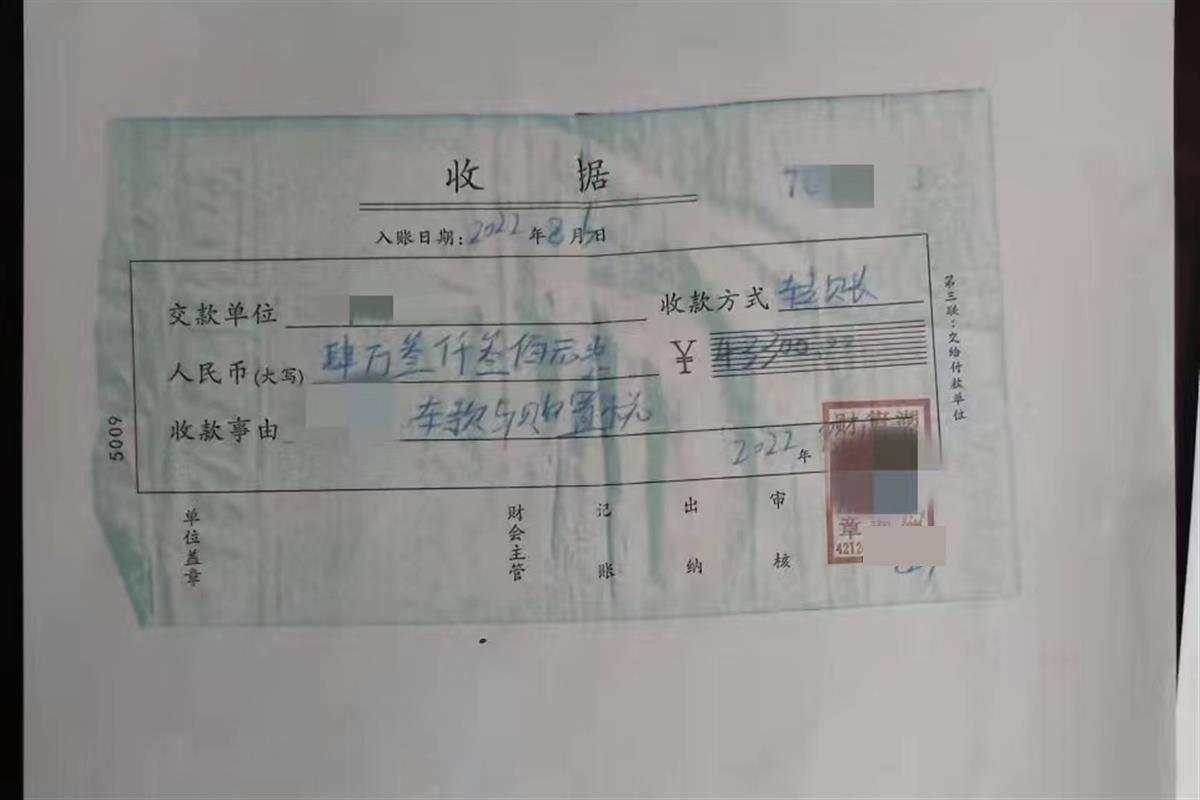 收据
入账日期：2022年8月5日
交款单位 收款方式 转账
人民币(大写) 肆万叁仟叁佰元整 ¥ 43300.00
收款事由 车款与购置税
2022年
第三联：交给付款单位
5009
单位盖章 财会主管 记账 出纳 审核
财
章
4212